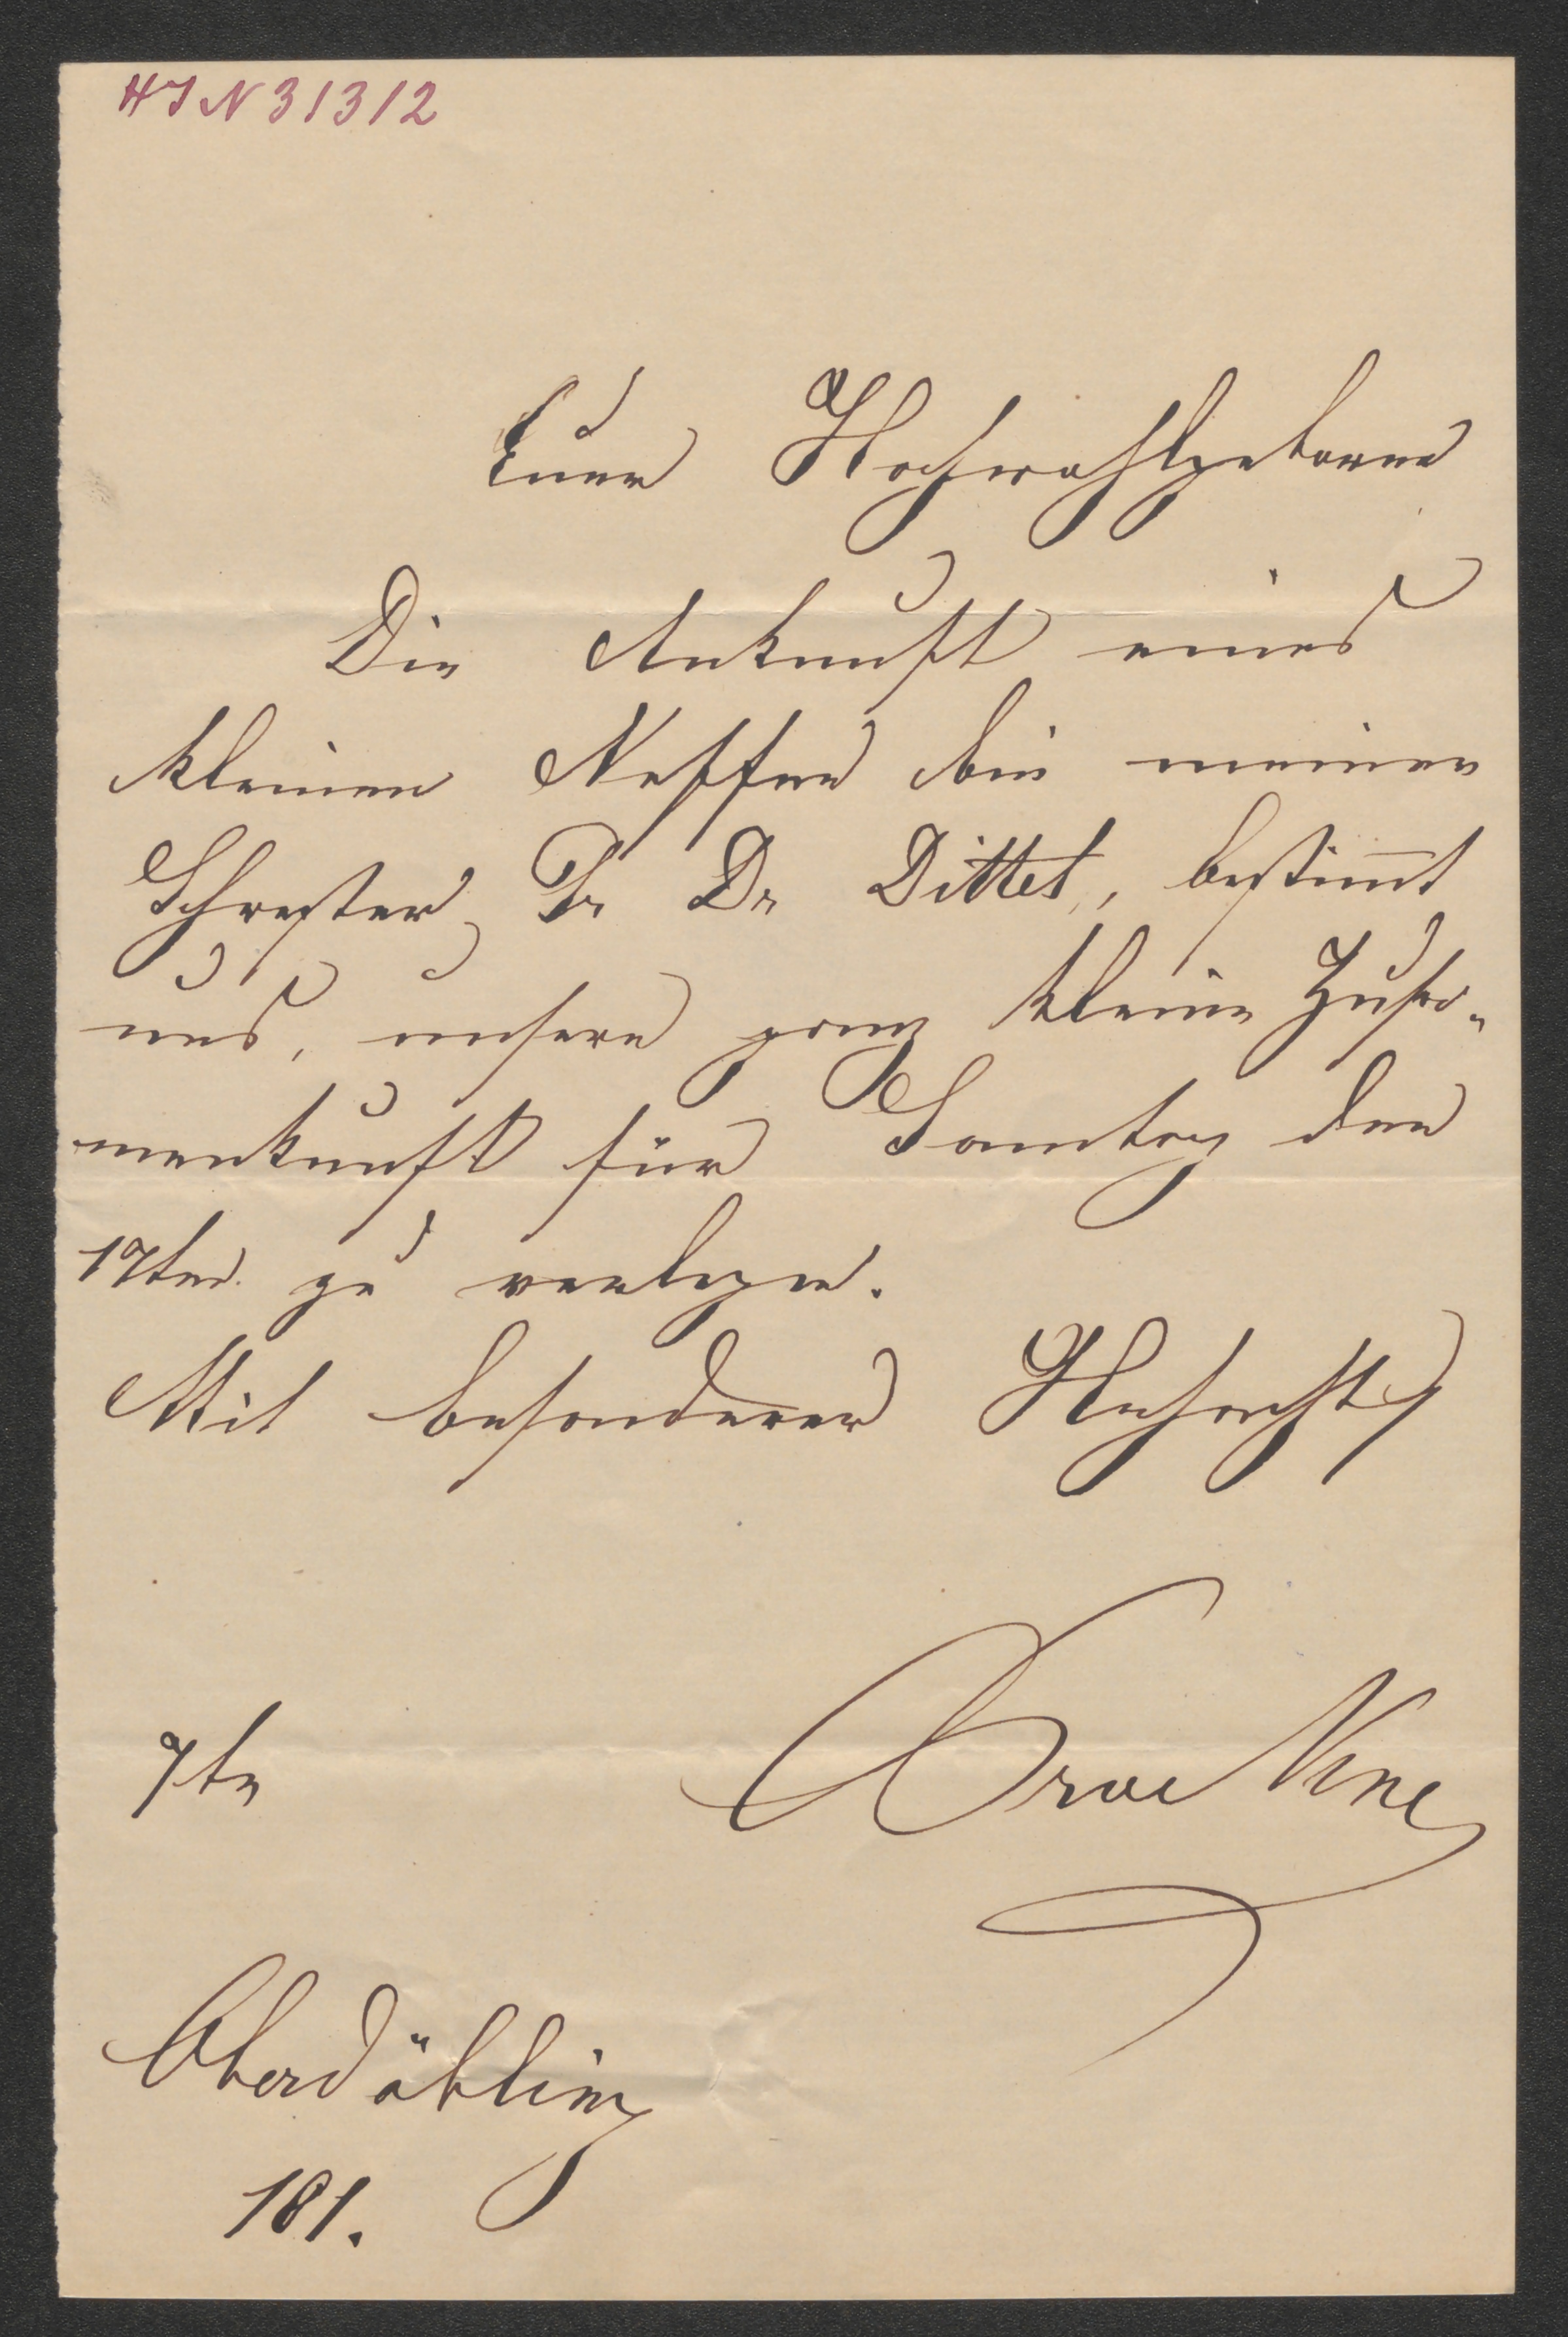 HIN 31312
Euer Hochwohlgeboren
Die Ankunft eines
kleinen Neffen bei meiner
Schwester, Fr Dr Dittel, bestimt
uns, unsere ganz kleine Zusa-
menkunft für Samtag den
17ten. zu verlegen.
Mit besonderer Hochacht
7te
Oberdöbling
181.